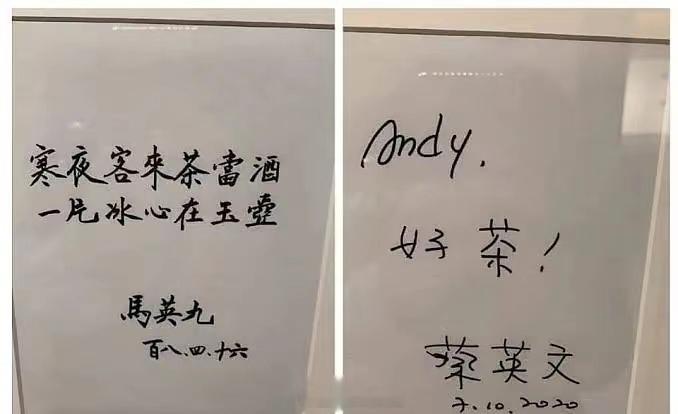 寒夜客來茶當酒
一片冰心在玉壺
馬英九
百八.四.十六
Andy,
好茶!
蔡英文
7.10.2020